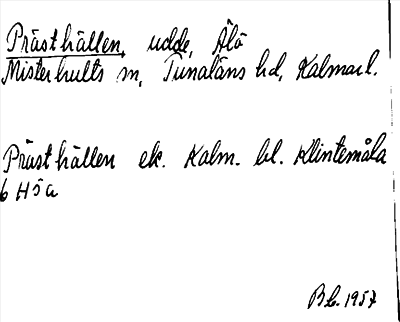 Prästhällen, udde, Älö
Misterhults sn, Tunaläns hd, Kalmar l.
Prästhällen ek. Kalm. bl. Klintemåla
6 H5a
Bb. 1957